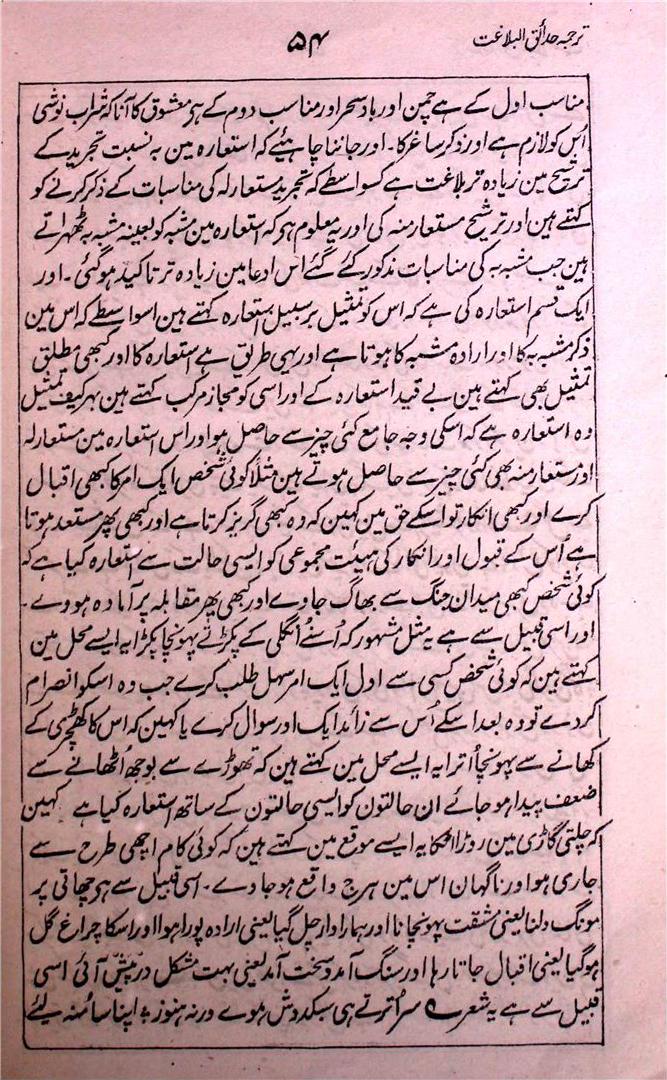 ترجمہ حدائق البلاغت
۵۴
مناسب اول کے ہے چمن اور باد سحر اور مناسب دوم کے ہے معشوق کا آنا کہ شراب نوشی
اُس کو لازم ہے اور ذکر ساغر کا۔ اور جاننا چاہیئے کہ استعارہ مین بہ نسبت تجرید کے
ترشیح مین زیادہ تر بلاغت ہے کسواسطے کہ تجرید مستعار لہ کی مناسبات کے ذکر کرنے کو
کہتے ہین اور ترشیح مستعار منہ کی اور یہ معلوم ہے کہ استعارہ مین مشبہ کو بعینہ مشبہ بہ ٹھہراتے
ہین جب مشبہ بہ کی مناسبات مذکور کئے گئے اس ادعا مین زیادہ تر تاکید ہو گئی۔ اور
ایک قسم استعارہ کی ہے کہ اس کو تمثیل بر سبیل استعارہ کہتے ہین اسواسطے کہ اس مین
ذکر مشبہ بہ کا اور ارادہ مشبہ کا ہوتا ہے اور یہی طریق ہے استعارہ کا اور کبھی مطلق
تمثیل بھی کہتے ہین بے قید استعارہ کے اور اسی کو مجاز مرکب کہتے ہین بہر کیف تمثیل
وہ استعارہ ہے کہ اسکی وجہ جامع کئی چیز سے حاصل ہو اور اس استعارہ مین مستعار لہ
اور مستعار منہ بھی کئی چیز سے حاصل ہوتے ہین مثلاً کوئی شخص ایک امر کا کبھی اقبال
کرے اور کبھی انکار تو اسکے حق مین کہین کہ وہ کبھی گریز کرتا ہے اور کبھی پھر مستعد ہوتا
ہے اُس کے قبول اور انکار کی ہیئت مجموعی کو ایسی حالت سے استعارہ کیا ہے کہ
کوئی شخص کبھی میدان جنگ سے بھاگ جاوے اور کبھی پھر مقابلہ پر آمادہ ہووے۔
اور اسی قبیل سے ہے یہ مثل مشہور کہ اُسنے اُنگلی کے پکڑتے پہونچا پکڑا یہ ایسے محل مین
کہتے ہین کہ کوئی شخص کسی سے اول ایک امر سہل طلب کرے جب وہ اسکو انصرام
کر دے تو وہ بعد اسکے اُس سے زائد ایک اور سوال کرے یا کہین کہ اس کا کھچڑی کے
کھانے سے پہونچا اُترا یہ ایسے محل مین کہتے ہین کہ تھوڑے سے بوجھ اُٹھانے سے
ضعف پیدا ہو جائے ان حالتون کو ایسی حالتون کے ساتھ استعارہ کیا ہے کہین
کہ چلتی گاڑی مین روڑا اٹکا یہ ایسے موقع مین کہتے ہین کہ کوئی کام اچھی طرح سے
جاری ہو اور ناگہان اس مین ہرج واقع ہو جاوے۔ اسی قبیل سے ہے چھاتی پر
مونگ دلنا یعنی مشقت پہونچانا اور ہمارا وار چل گیا یعنی ارادہ پورا ہوا اور اسکا چراغ گل
ہو گیا یعنی اقبال جاتا رہا اور سنگ آمد و سخت آمد یعنی بہت مشکل درپیش آئی اسی
قبیل سے ہے یہ شعر ؎ سر اُترتے ہی سبکدوش ہوے ورنہ ہنوز ؞ اپنا سا مُنہ لیئے